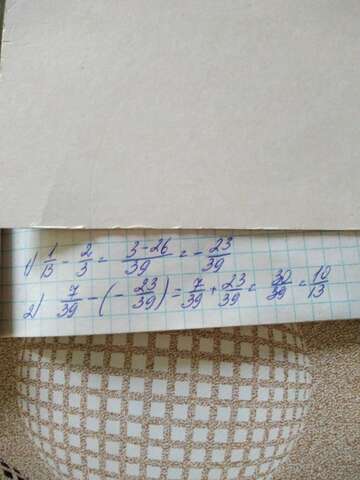 1) 1/13 - 2/3 = 3-26/39 = - 23/39
2) 7/39 - (- 23/39) = 7/39 + 23/39 = 30/39 = 10/13